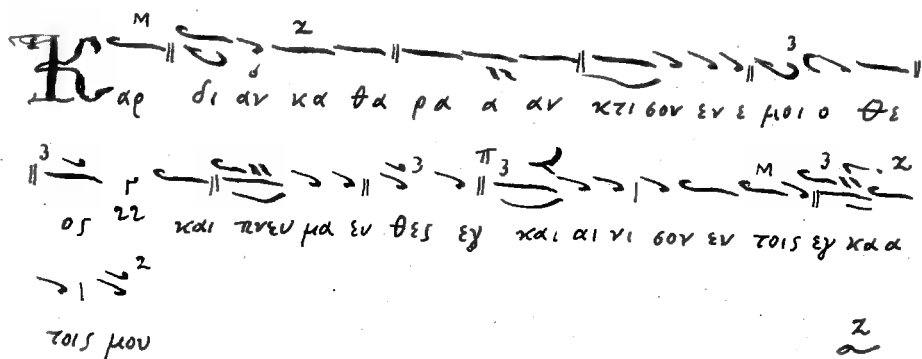 Καρ δι αν κα θα ρα α αν κτι σον εν ε μοι ο θε
ος και πνευ μα ευ θες εγ και αι νι σον εν τοις εγ κα α
τοις μου